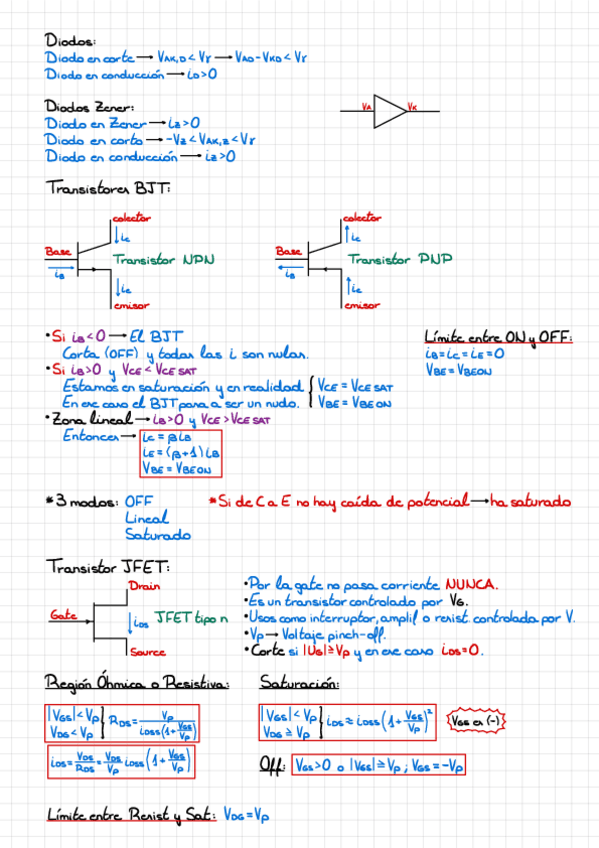 Diodos:
Diodo en corte → VAK,D < Vγ → VAD-VKD < Vγ
Diodo en conducción → iD>0
Diodos Zener:
Diodo en Zener → iZ>0
Diodo en corto → -VZ < VAK,Z < Vγ
Diodo en conducción → iZ>0
VA VK
Transistores BJT:
colector colector
ic ic
Base Transistor NPN Base Transistor PNP
iB iB
ie ie
emisor emisor
•Si iB<0 → El BJT
Corta (OFF) y todas las i son nulas.
•Si iB>0 y VCE < VCE SAT
Estamos en saturación y en realidad { VCE = VCE SAT
En ese caso el BJT pasa a ser un nudo. { VBE = VBE ON
•Zona lineal → iB>0 y VCE > VCE SAT
Entonces → iC = βiB
iE = (β+1) iB
VBE = VBE ON
Límite entre ON y OFF:
iB = iC = iE = 0
VBE = VBE ON
*3 modos: OFF
Lineal
Saturado
*Si de C a E no hay caída de potencial → ha saturado
Transistor JFET:
Drain
Gate iDS JFET tipo n
Source
•Por la gate no pasa corriente NUNCA.
•Es un transistor controlado por VG.
•Usos como interruptor, amplif o resist. controlada por V.
•Vp → Voltaje pinch-off.
•Corte si |UG| ≥ Vp y en ese caso iDS=0.
Región Óhmica o Resistiva:
|VGS| < Vp
VDG < Vp } RDS = Vp / iDSS(1+VGS/Vp)
iDS = VDS/RDS = VDS/Vp iDSS (1+VGS/Vp)
Saturación:
|VGS| < Vp
VDG ≥ Vp } iDS ≈ iDSS (1+VGS/Vp)²
VGS es (-)
Off: VGS>0 o |VGS| ≥ Vp ; VGS = -Vp
Límite entre Resist y Sat: VDG = Vp